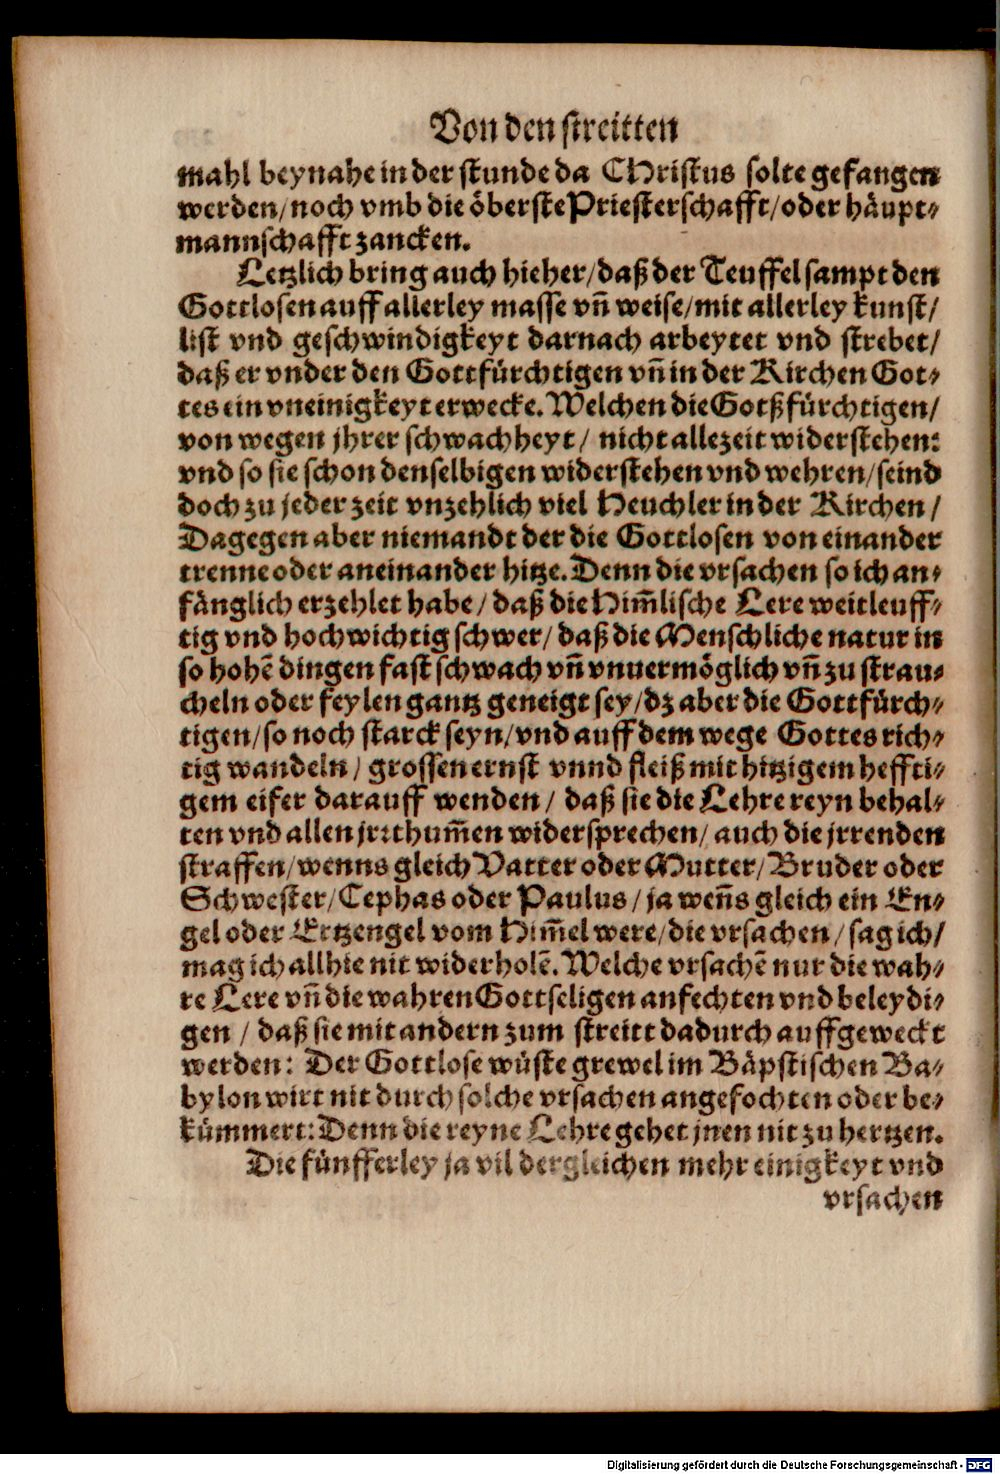 Von den streitten
mahl beynahe in der stunde da CHristus solte gefangen
werden/noch vmb die öberste Priesterschafft/oder häupt⸗
mannschafft zancken.
Letzlich bring auch hieher/daß der Teuffel sampt den
Gottlosen auff allerley masse vñ weise/mit allerley kunst/
list vnd geschwindigkeyt darnach arbeytet vnd strebet/
daß er vnder den Gottfürchtigen vñ in der Kirchen Got⸗
tes ein vneinigkeyt erwecke. Welchen die Gotßfürchtigen/
von wegen jhrer schwachheyt/ nicht allezeit widerstehen:
vnd so sie schon denselbigen widerstehen vnd wehren/seind
doch zu jeder zeit vnzehlich viel Heuchler in der Kirchen/
Dagegen aber niemandt der die Gottlosen von einander
trenne oder aneinander hitze. Denn die vrsachen so ich an⸗
fänglich erzehlet habe/ daß die Him̃lische Lere weitleuff⸗
tig vnd hochwichtig schwer/ daß die Menschliche natur in
so hohē dingen fast schwach vñ vnuermöglich vñ zu strau⸗
cheln oder feylen gantz geneigt sey/dz aber die Gottfürch⸗
tigen/so noch starck seyn/vnd auff dem wege Gottes rich⸗
tig wandeln/ grossen ernst vnnd fleiß mit hitzigem heffti⸗
gem eifer darauff wenden/ daß sie die Lehre reyn behal⸗
ten vnd allen jrꝛthum̃en widersprechen/ auch die jrrenden
straffen/wenns gleich Vatter oder Mutter/Bruder oder
Schwester/Cephas oder Paulus/ja weñs gleich ein En⸗
gel oder Ertzengel vom Him̃el were/die vrsachen/sag ich/
mag ich allhie nit widerholē. Welche vrsachē nur die wah⸗
re Lere vñ die wahren Gottseligen anfechten vnd beleydi⸗
gen / daß sie mit andern zum streitt dadurch auffgeweckt
werden: Der Gottlose wüste grewel im Bäpstischen Ba⸗
bylon wirt nit durch solche vrsachen angefochten oder be⸗
kümmert: Denn die reyne Lehre gehet jnen nit zu hertzen.
Die fünfferley ja vil dergleichen mehr einigkeyt vnd
vrsachen
Digitalisierung gefördert durch die Deutsche Forschungsgemeinschaft - DFG